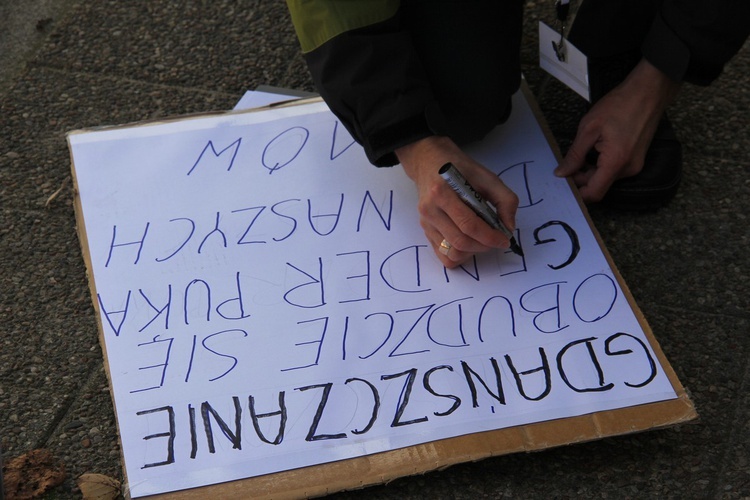 GDAŃSZCZANIE
OBUDZCIE SIĘ
GENDER PUKA
NASZYCH
MÓW